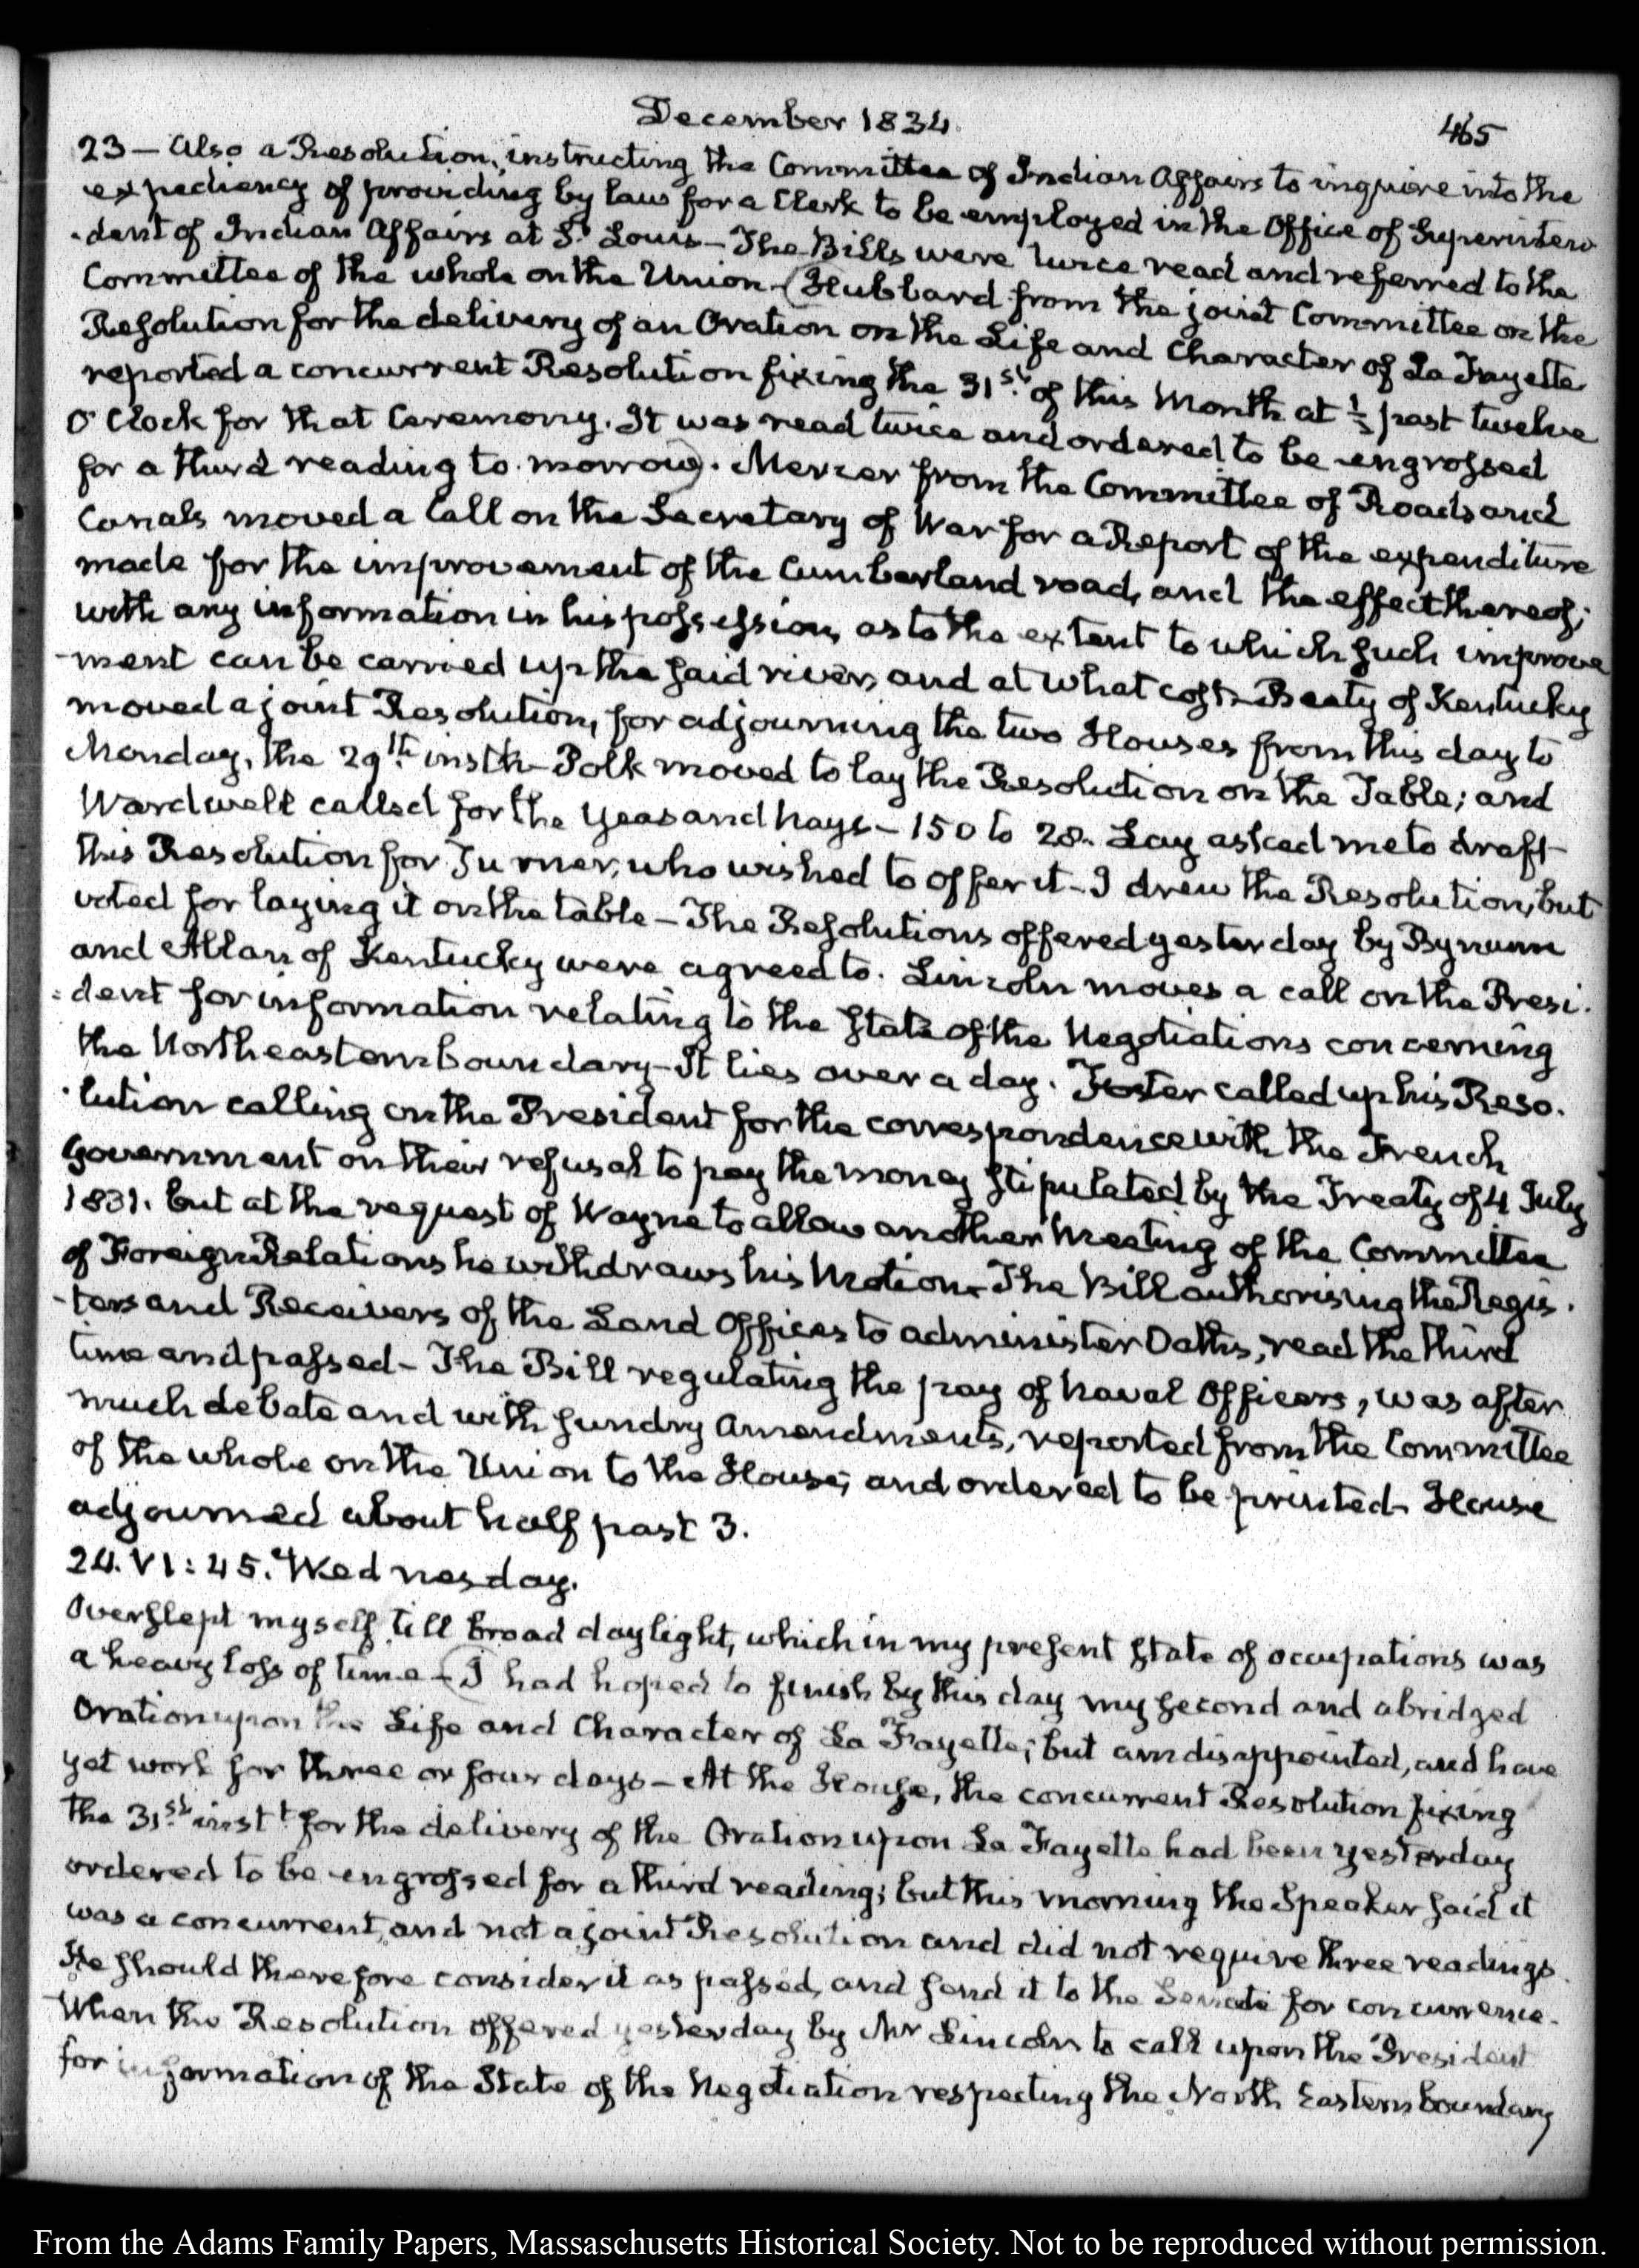 December 1834.
465
23 — Also a Resolution, instructing the Committee of Indian Affairs to inquire into the
expediency of providing by law for a Clerk to be employed in the Office of Superinten
-dent of Indian Affairs at St. Louis — The Bills were twice read and referred to the
Committee of the whole on the Union — (Hubbard from the joint Committee on the
Resolution for the delivery of an Oration on the Life and Character of La Fayette
reported a concurrent Resolution fixing the 31st. of this Month at ½ past twelve
O'Clock for that Ceremony. It was read twice and ordered to be engrossed
for a third reading to-morrow). Mercer from the Committee of Roads and
Canals moved a Call on the Secretary of War for a Report of the expenditure
made for the improvement of the Cumberland road, and the effect thereof;
with any information in his possession, as to the extent to which such improve
-ment can be carried up the said river, and at what cost — Beaty of Kentucky
moved a joint Resolution, for adjourning the two Houses from this day to
Monday, the 29th. instt. — Polk moved to lay the Resolution on the Table; and
Wardwell called for the Yeas and Nays — 150 to 28. Lay asked me to draft
this Resolution for Turner, who wished to offer it — I drew the Resolution, but
voted for laying it on the table — The Resolutions offered yesterday by Bynum
and Allan of Kentucky were agreed to. Lincoln moves a call on the Presi-
=dent for information relating to the state of the Negotiations concerning
the Northeastern boundary — It lies over a day. Foster called up his Reso-
-lution calling on the President for the correspondence with the French
Government on their refusal to pay the money stipulated by the Treaty of 4 July
1831. but at the request of Wayne to allow another Meeting of the Committee
of Foreign Relations he withdraws his Motion — The Bill authorising the Regis-
-ters and Receivers of the Land Offices to administer Oaths, read the third
time and passed — The Bill regulating the pay of Naval Officers, was after
much debate and with sundry Amendments, reported from the Committee
of the whole on the Union to the House; and ordered to be printed — House
adjourned about half past 3.
24. VI: 45. Wednesday.
Overslept myself till broad daylight, which in my present state of occupations was
a heavy loss of time — (I had hoped to finish by this day my second and abridged
Oration upon the Life and Character of La Fayette; but am disappointed, and have
yet work for three or four days — At the House, the concurrent Resolution fixing
the 31st. instt. for the delivery of the Oration upon La Fayette had been yesterday
ordered to be engrossed for a third reading; but this morning the Speaker said it
was a concurrent, and not a joint Resolution and did not require three readings.
He should therefore consider it as passed, and send it to the Senate for concurrence.
When the Resolution offered yesterday by Mr Lincoln to call upon the President
for information of the State of the Negotiation respecting the North Eastern boundary
From the Adams Family Papers, Massachusetts Historical Society. Not to be reproduced without permission.